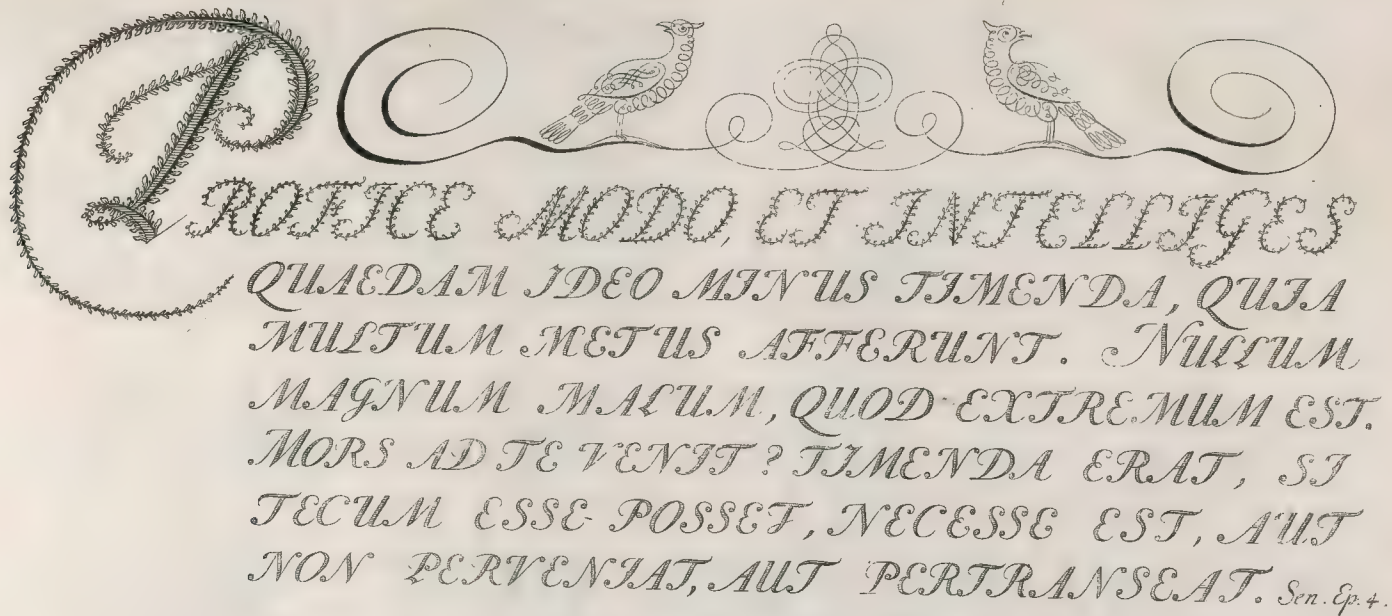 PROFICE MODO, ET INTELLIGES
QUAEDAM IDEO MINUS TIMENDA, QUIA
MULTUM METUS AFFERUNT. NULLUM
MAGNUM MALUM, QUOD EXTREMUM EST.
MORS AD TE VENIT? TIMENDA ERAT, SI
TECUM ESSE POSSET, NECESSE EST, AUT
NON PERVENIAT, AUT PERTRANSEAT. Sen. Ep. 4.